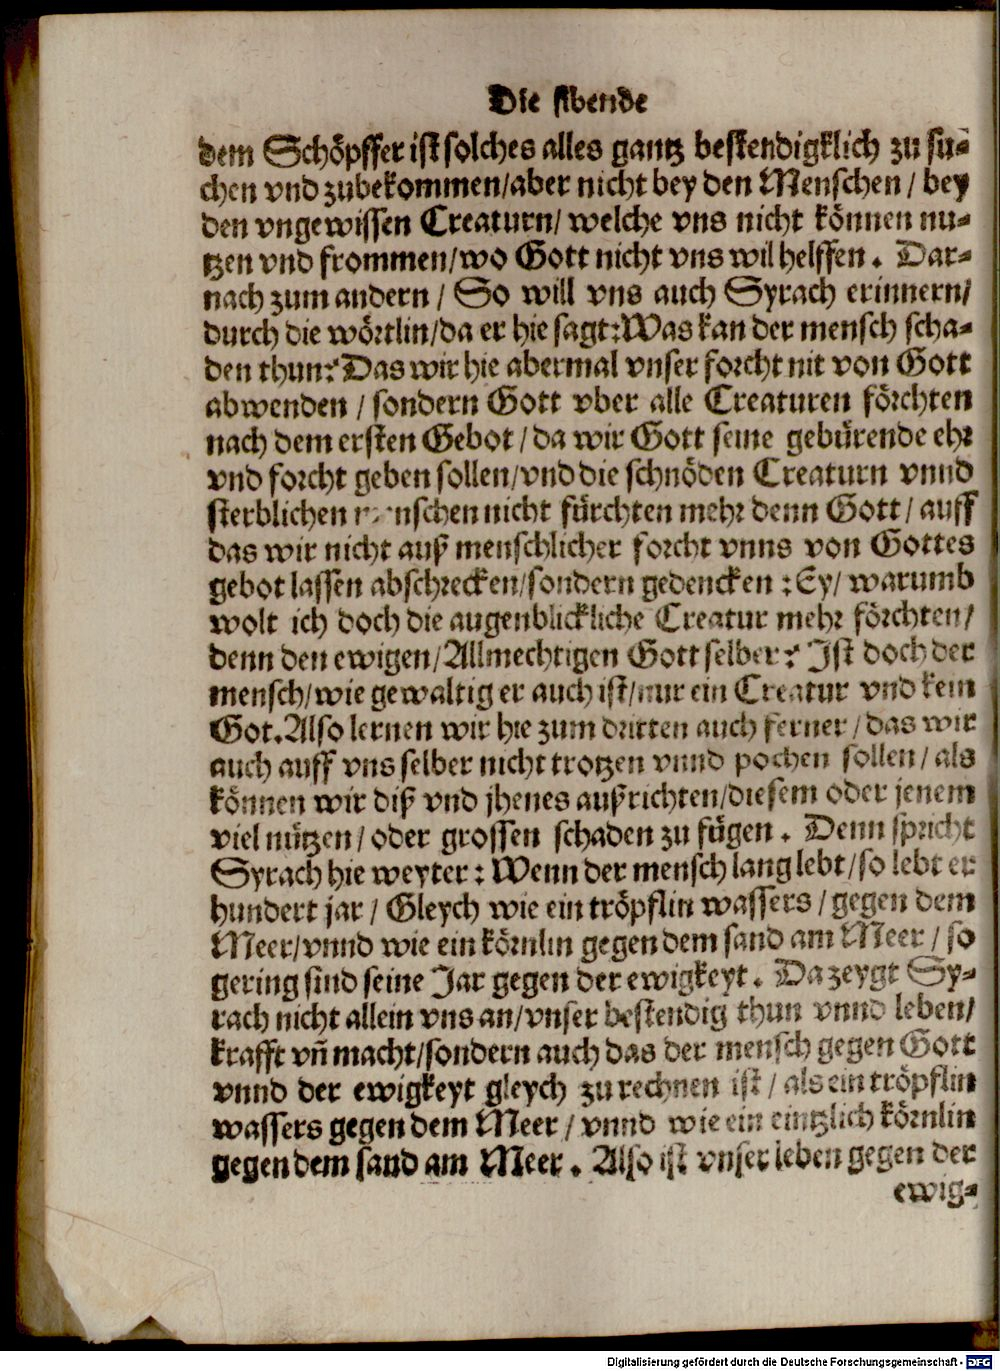 Die sibende
dem Schöpffer ist solches alles gantz bestendigklich zu su-
chen vnd zubekommen/aber nicht bey den Menschen / bey
den vngewissen Creaturn/ welche vns nicht können nu-
tzen vnd frommen/wo Gott nicht vns wil helffen. Dar-
nach zum andern / So will vns auch Syrach erinnern/
durch die wörtlin/da er hie sagt:Was kan der mensch scha-
den thun? Das wir hie abermal vnser forcht nit von Gott
abwenden / sondern Gott vber alle Creaturen förchten
nach dem ersten Gebot / da wir Gott seine gebürende ehr
vnd forcht geben sollen/vnd die schnöden Creaturn vnnd
sterblichen menschen nicht fürchten mehr denn Gott / auff
das wir nicht auß menschlicher forcht vnns von Gottes
gebot lassen abschrecken/sondern gedencken : Ey/ warumb
wolt ich doch die augenblickliche Creatur mehr förchten/
denn den ewigen/Allmechtigen Gott selber? Ist doch der
mensch/wie gewaltig er auch ist/nur ein Creatur vnd kein
Got. Also lernen wir hie zum dritten auch ferner / das wir
auch auff vns selber nicht trotzen vnnd pochen sollen / als
können wir diß vnd jhenes außrichten/diesem oder jenem
viel nützen / oder grossen schaden zu fügen. Denn spricht
Syrach hie weyter : Wenn der mensch lang lebt/so lebt er
hundert jar / Gleych wie ein tröpflin wassers / gegen dem
Meer/vnnd wie ein körnlin gegen dem sand am Meer / so
gering sind seine Jar gegen der ewigkeyt. Da zeygt Sy-
rach nicht allein vns an/vnser bestendig thun vnnd leben/
krafft vñ macht/sondern auch das der mensch gegen Gott
vnnd der ewigkeyt gleych zu rechnen ist / als ein tröpflin
wassers gegen dem Meer / vnnd wie ein eintzlich körnlin
gegen dem sand am Meer. Also ist vnser leben gegen der
ewig-
Digitalisierung gefördert durch die Deutsche Forschungsgemeinschaft - DFG